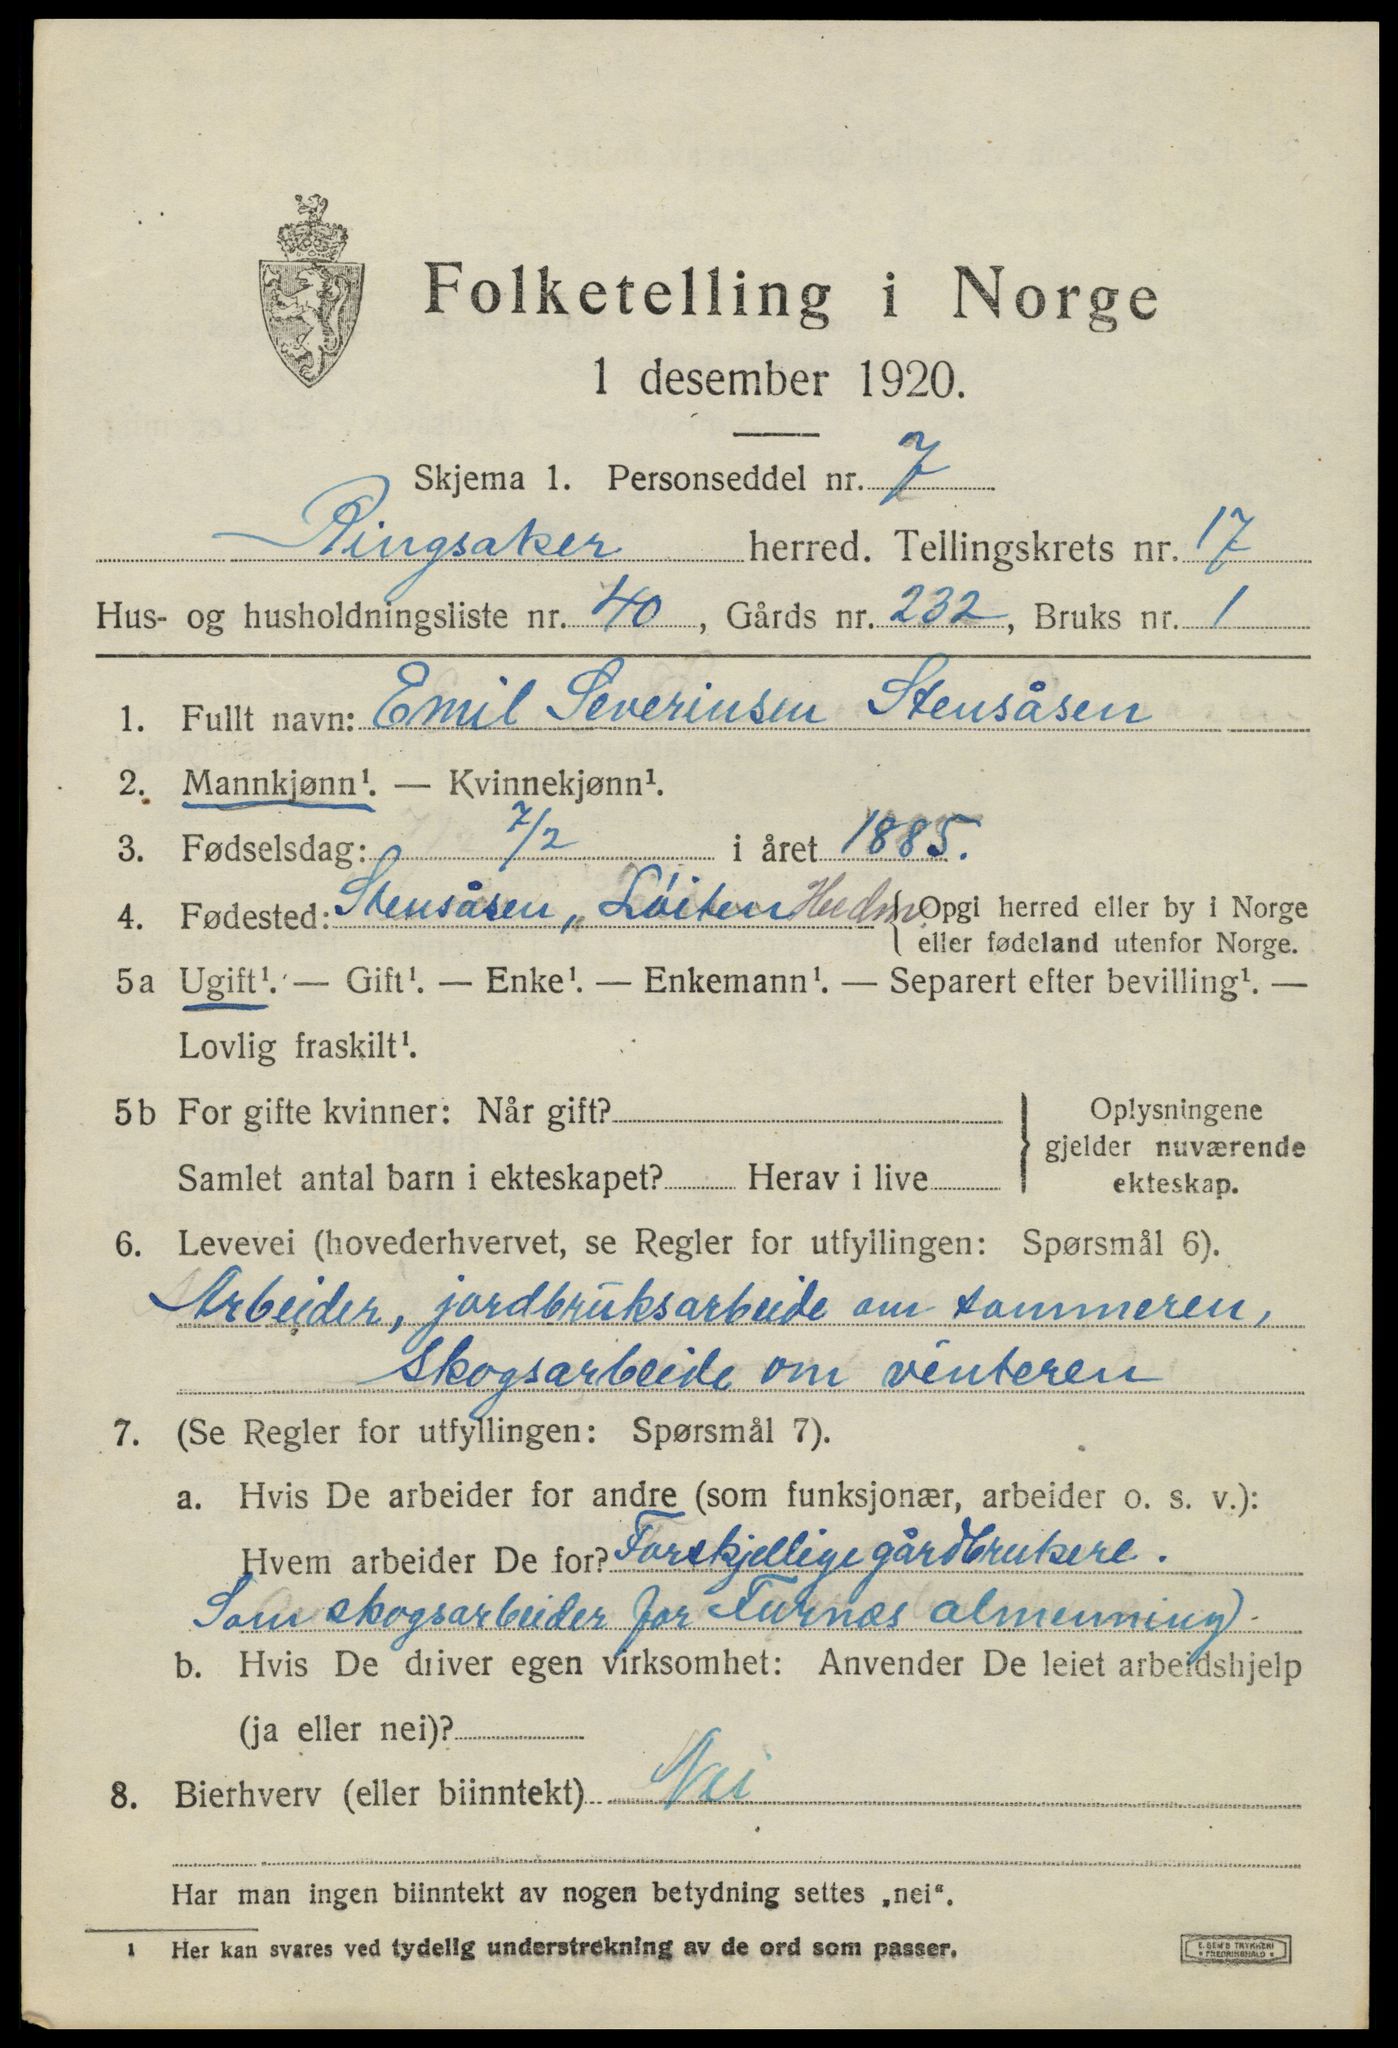 Folketelling i Norge
1 desember 1920.
Skjema 1. Personseddel nr. 7
Ringsaker herred. Tellingskrets nr. 17
Hus- og husholdningsliste nr. 40, Gårds nr. 232, Bruks nr. 1
1. Fullt navn: Emil Severinsen Stensåsen
2. Mannkjønn¹. — Kvinnekjønn¹.
3. Fødselsdag: 7/2 i året 1885.
4. Fødested: Stensåsen, Löiten Hedm. Opgi herred eller by i Norge
eller fødeland utenfor Norge.
5a Ugift¹. — Gift¹. — Enke¹. — Enkemann¹. — Separert efter bevilling¹. —
Lovlig fraskilt¹.
5b For gifte kvinner: Når gift?
Samlet antal barn i ekteskapet? Herav i live
Oplysningene
gjelder nuværende
ekteskap.
6. Levevei (hovederhvervet, se Regler for utfyllingen: Spørsmål 6).
Arbeider, jordbruksarbeide om sommeren,
skogsarbeide om vinteren
7. (Se Regler for utfyllingen: Spørsmål 7).
a. Hvis De arbeider for andre (som funksjonær, arbeider o. s. v.):
Hvem arbeider De for? Forskjellige gårdbrukere.
Som skogsarbeider for Furnæs almenning)
b. Hvis De driver egen virksomhet: Anvender De leiet arbeidshjelp
(ja eller nei)?
8. Bierhverv (eller biinntekt) Nei
Har man ingen biinntekt av nogen betydning settes „nei“.
1 Her kan svares ved tydelig understrekning av de ord som passer.
E. SEM'S TRYKKERI
* FREDRIKSHALD *